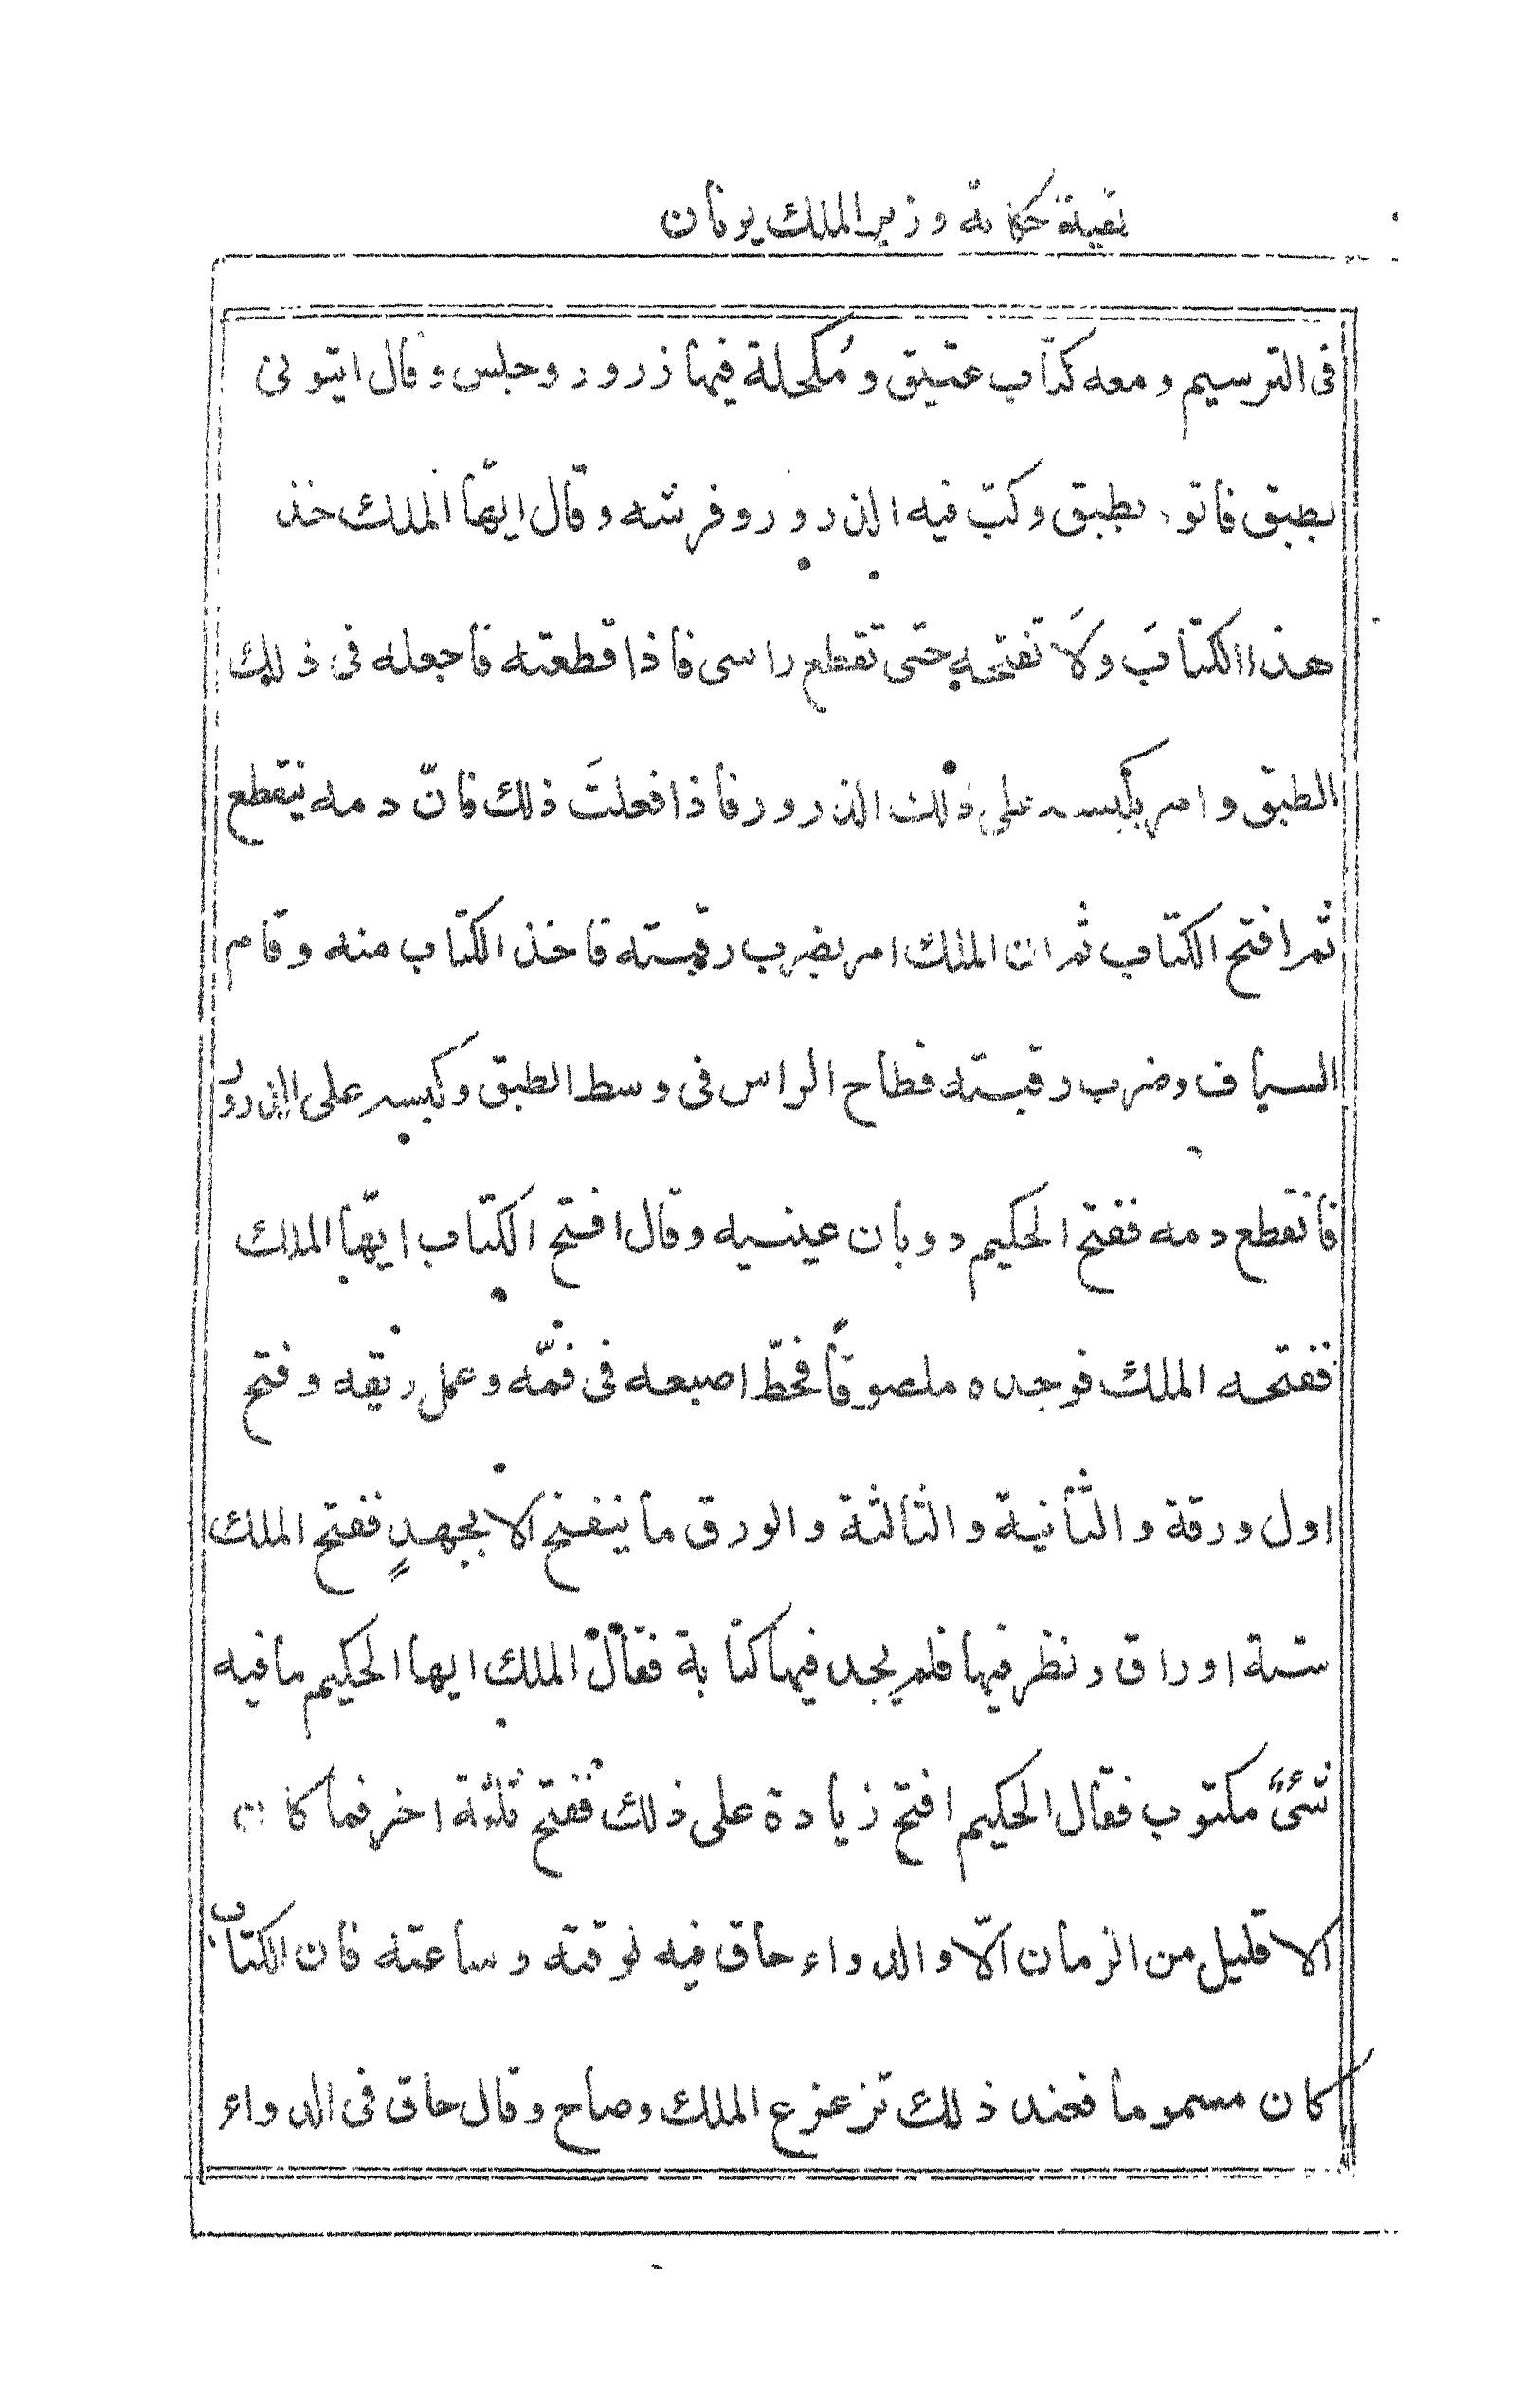 بقية حكاية وزير الملك يونان
فى الترسيم ومعه كتاب عتيق ومُكحلة فيها زرور وجلس وقال ايتونى
بطبق فاتوه بطبق وكبّ فيه الذرور وفرشه وقال ايّها الملك خذ
هذا الكتابَ ولَا تفتحه حتى تقطع راسى فاذا قطعته فاجعله فى ذلك
الطبق وامر بكبسه على ذلك الذرور فاذا فعلتَ ذلك فانّ دمه ينقطع
ثم افتح الكتاب ثم ان الملك امر بضرب رقبته فاخذ الكتاب منه وقام
السياف وضرب رقبته فطاح الراس فى وسط الطبق وكبسه على الذرور
فانقطع دمه ففتح الحكيم دوبان عينيه وقال افتح الكتاب ايّها الملك
ففتحه الملك فوجده ملصوقاً فحطّ اصبعه فى فمّه وعمل ريقه وفتح
اول ورقة والثانية والثالثة والورق ما ينفتح الا بجهدٍ ففتح الملك
ستة اوراق ونظر فيها فلم يجد فيها كتابة فقال الملك ايها الحكيم ما فيه
شىءً مكتوب فقال الحكيم افتح زيادة على ذلك ففتح ثلثة اخر فما كان
الا قليل من الزمان الّا والدواء حاق فيه لوقته وساعته فان الكتاب
كان مسموما فعند ذلك تزعزع الملك وصاح وقال حاق فى الدواء